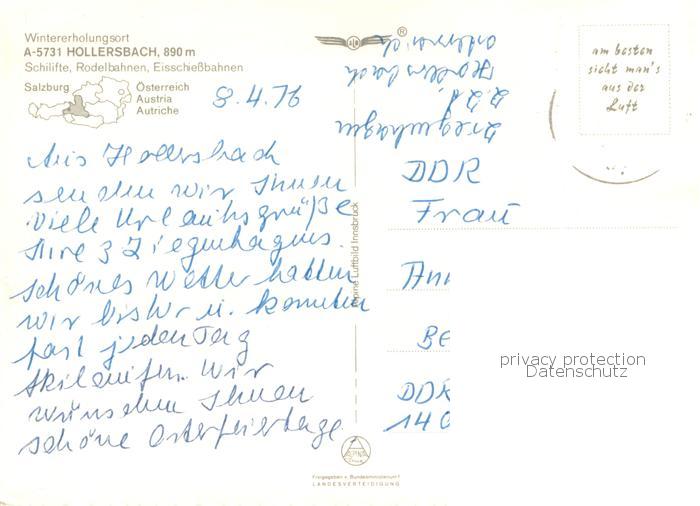 Wintererholungsort
A-5731 HOLLERSBACH, 890 m
Schilifte, Rodelbahnen, Eisschießbahnen
Salzburg
Österreich
Austria
Autriche
8.4.76
Aus Hollersbach
senden wir Ihnen
viele Urlaubsgrüße
Ihre 3 Ziegenhagens.
Schönes Wetter hatten
wir bisher u. konnten
fast jeden Tag
Skilaufen. Wir
wünschen Ihnen
schöne Osterfeiertage
Alpine Luftbild Innsbruck
®
Ziegenhagen
z.Zt.
Hollersbach
Österreich
am besten
sieht man's
aus der
Luft
DDR
Frau
Ann
BE
DDR
140
privacy protection
Datenschutz
ALPINE
Freigegeben v. Bundesministerium f.
LANDESVERTEIDIGUNG